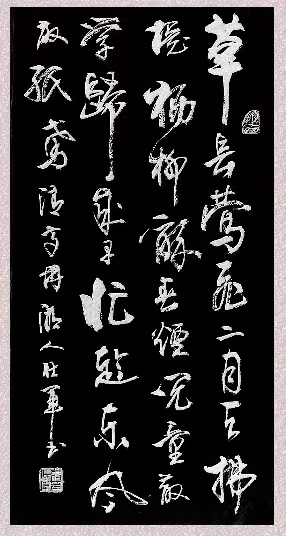 草長鶯飛二月天拂
堤楊柳醉春煙兒童散
學歸來早忙趁东风
放紙鳶 清高 人 軍书